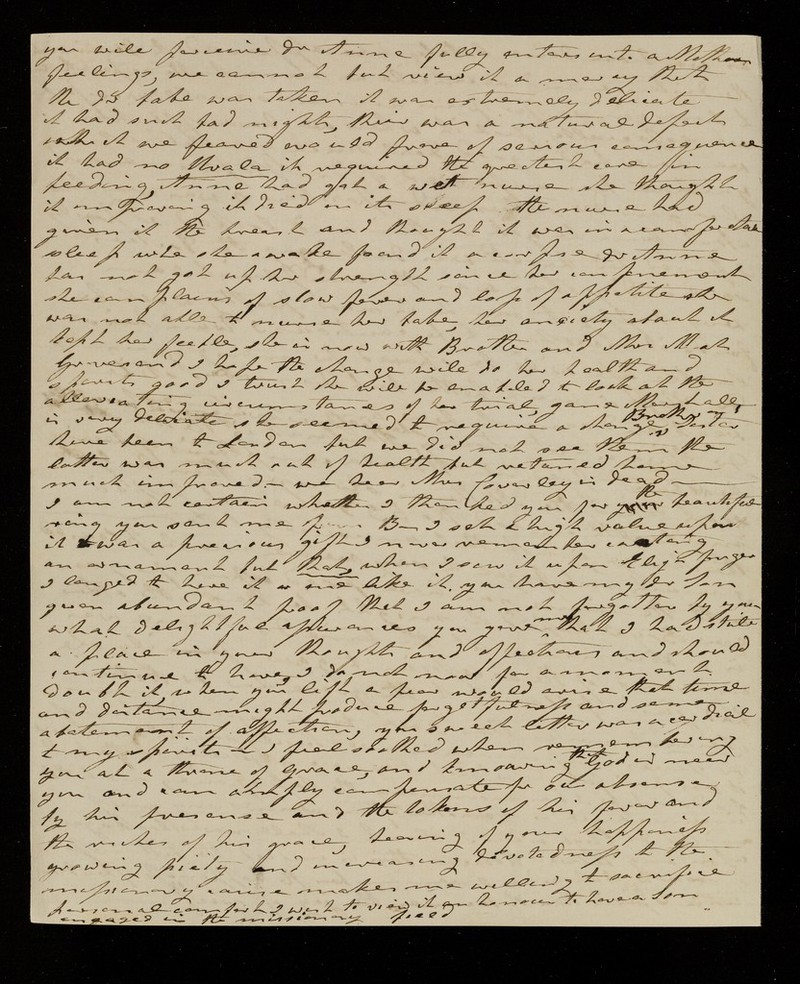 you will perceive dr Anne fully enters into a Mothers
feelings, we cannot but view it a mercy that
the dr babe was taken it was extremely delicate
it had such bad nights, their was a natural defect
which we feared would prove of serious consequence
it had no Uvala it required the greatest care in
feeding, Anne had got a wet nurse she thought
it improving it died in its sleep the nurse had
given it the breast and thought it was in a comfortable
sleep whe she awake found it a corpse dr Anne
has not got up her strength since her confinement
she complains of slow fever and loss of appetite she
was not able to nurse her babe, her anxiety about it
kept her feeble, she is now with Brother and Mrs M at
Gravesend I hope the change will do her health and
spirits good I trust she will be enabled to look at the
alleviating circumstances of her trial, Jane Marshall
is very delicate she seemed to require a change, Brother & Sister
have been to London but we did not see them the
latter was much out of health but returned home
much improved - we hear Mrs Coverley is dead -
I am not certain whether I thanked you for the beautiful
ring you sent me I set a high value upon
it was a precious gift I never remember coveting
an ornament but that, when I saw it upon finger
I longed to have it or one like it, you have my dr Son
given abundant proof that I am not forgotten by you
what delightful assurances you give me that I had still
a place in your thoughts and affections and should
continue to have, I do not now for a moment
doubt it, when you left a fear would arise that time
and distance might produce forgetfulness and some
abatement of affection, your sweet letter was a cordial
to my spirits I feel soothed when remembering
you at a throne of Grace, and knowing that God is near
you and can amply compensate for our absense
by his presense and the tokens of his favor and
the riches of his grace, hearing of your happiness
growing piety and increasing devotedness to the
missionary cause makes me willing to sacrifice
personal comfort I wish to view it an honour to have a son
engaged in the missionary field